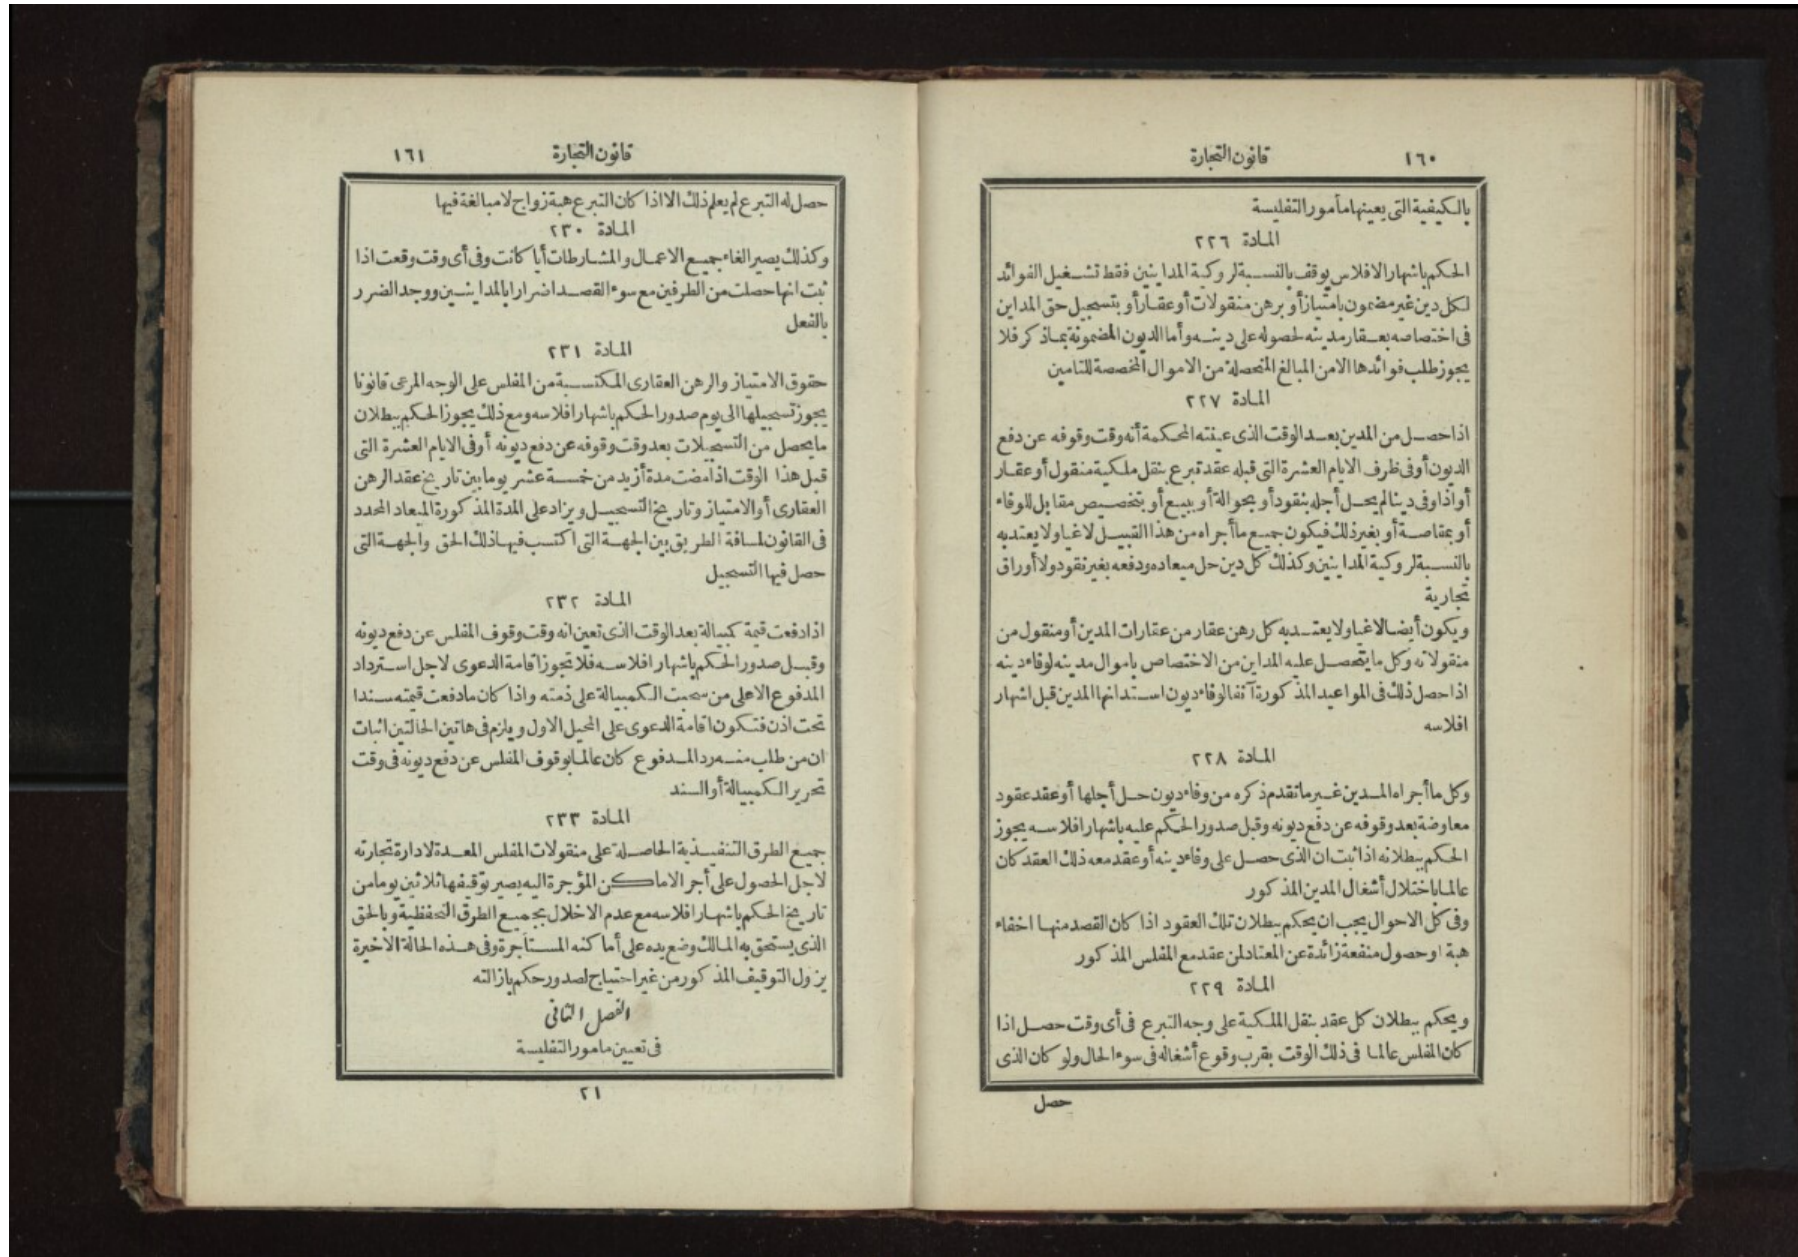 ١٦٠
قانون التجارة
بالكيفية التى يعينها مأمور التفليسة
المادة ٢٢٦
الحكم باشهار الافلاس يوقف بالنسبة لروكية المداينين فقط تشغيل الفوائد
لكل دين غير مضمون بامتياز أو برهن منقولات أو عقار أو بتسجيل حق المداين
فى اختصاصه بعقار مدينه لحصوله على دينه وأما الديون المضمونة بماذكر فلا
يجوز طلب فوائدها الا من المبالغ المتحصلة من الاموال المخصصة للتامين
المادة ٢٢٧
اذا حصل من المدين بعد الوقت الذى عينته المحكمة أنه وقت وقوفه عن دفع
الديون أو فى ظرف الايام العشرة التى قبله عقد تبرع بنقل ملكية منقول أو عقار
أو اذا وفى دينا لم يحل أجله بنقود أو بحوالة أو ببيع أو بتخصيص مقابل للوفاء
أو بمقاصة أو بغير ذلك فيكون جميع ما أجراه من هذا القبيل لاغيا ولا يعتد به
بالنسبة لروكية المداينين وكذلك كل دين حل ميعاده ودفعه بغير نقود ولا أوراق
تجارية
ويكون أيضا لاغيا ولا يعتد به كل رهن عقار من عقارات المدين أو منقول من
منقولاته وكل ما يتحصل عليه المداين من الاختصاص باموال مدينه لوفاء دينه
اذا حصل ذلك فى المواعيد المذكورة آنفا لوفاء ديون استدانها المدين قبل اشهار
افلاسه
المادة ٢٢٨
وكل ما أجراه المدين غير ما تقدم ذكره من وفاء ديون حل أجلها أو عقد عقود
معاوضة بعد وقوفه عن دفع ديونه وقبل صدور الحكم عليه باشهار افلاسه يجوز
الحكم ببطلانه اذا ثبت ان الذى حصل على وفاء دينه أو عقد معه ذلك العقد كان
عالما باختلال أشغال المدين المذكور
وفى كل الاحوال يجب ان يحكم ببطلان تلك العقود اذا كان القصد منها اخفاء
هبة او حصول منفعة زائدة عن المعتاد لمن عقد مع المفلس المذكور
المادة ٢٢٩
ويحكم ببطلان كل عقد بنقل الملكية على وجه التبرع فى أى وقت حصل اذا
كان المفلس عالما فى ذلك الوقت بقرب وقوع أشغاله فى سوء الحال ولو كان الذى
حصل
قانون التجارة
١٦١
حصل له التبرع لم يعلم ذلك الا اذا كان التبرع هبة زواج لا مبالغة فيها
المادة ٢٣٠
وكذلك يصير الغاء جميع الاعمال والمشارطات أيا كانت وفى أى وقت وقعت اذا
ثبت انها حصلت من الطرفين مع سوء القصد اضرارا بالمداينين ووجد الضرر
بالفعل
المادة ٢٣١
حقوق الامتياز والرهن العقارى المكتسبة من المفلس على الوجه المرعى قانونا
يجوز تسجيلها الى يوم صدور الحكم باشهار افلاسه ومع ذلك يجوز الحكم ببطلان
ما يحصل من التسجيلات بعد وقت وقوفه عن دفع ديونه أو فى الايام العشرة التى
قبل هذا الوقت اذا مضت مدة أزيد من خمسة عشر يوما بين تاريخ عقد الرهن
العقارى أو الامتياز وتاريخ التسجيل ويزاد على المدة المذكورة الميعاد المحدد
فى القانون لمسافة الطريق بين الجهة التى اكتسب فيها ذلك الحق والجهة التى
حصل فيها التسجيل
المادة ٢٣٢
اذا دفعت قيمة كمبيالة بعد الوقت الذى تعين انه وقت وقوف المفلس عن دفع ديونه
وقبل صدور الحكم باشهار افلاسه فلا تجوز اقامة الدعوى لاجل استرداد
المدفوع الا على من سحبت الكمبيالة على ذمته واذا كان ما دفعت قيمته سندا
تحت اذن فتكون اقامة الدعوى على المحيل الاول ويلزم فى هاتين الحالتين اثبات
ان من طلب منه رد المدفوع كان عالما بوقوف المفلس عن دفع ديونه فى وقت
تحرير الكمبيالة أو السند
المادة ٢٣٣
جميع الطرق التنفيذية الحاصلة على منقولات المفلس المعدة لادارة تجارته
لاجل الحصول على أجر الاماكن المؤجرة اليه يصير توقيفها ثلاثين يوما من
تاريخ الحكم باشهار افلاسه مع عدم الاخلال بجميع الطرق التحفظية وبالحق
الذى يستحق به المالك وضع يده على أماكنه المستأجرة وفى هذه الحالة الاخيرة
يزول التوقيف المذكور من غير احتياج لصدور حكم بازالته
الفصل الثانى
فى تعيين مامور التفليسة
٢١